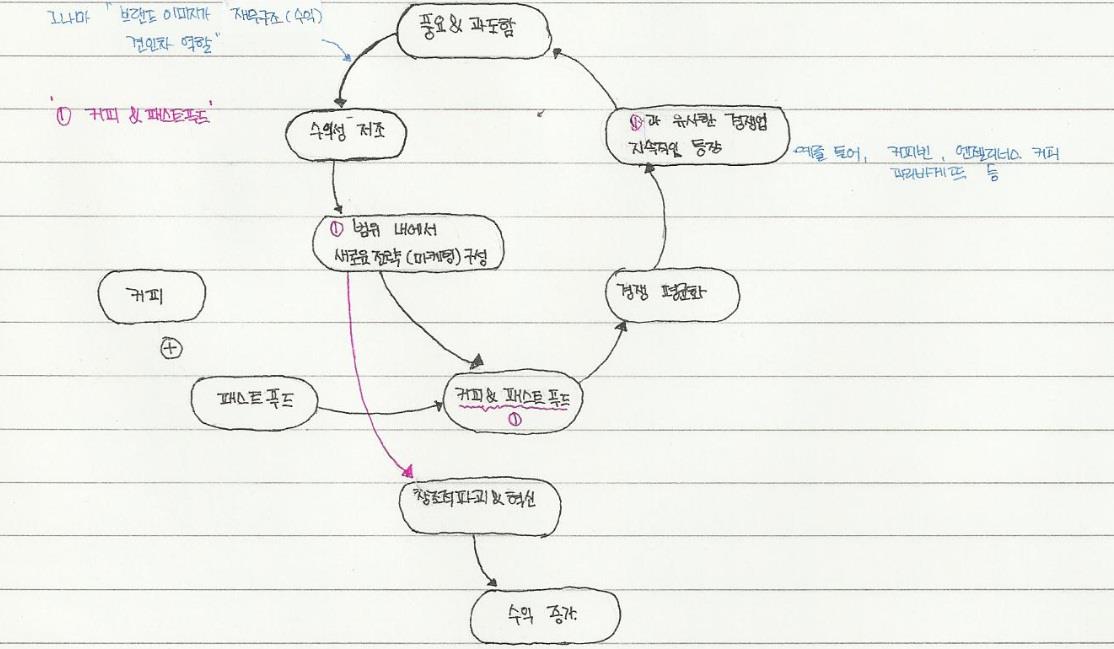 그나마 "브랜드 이미지가 재무구조(수익)
견인차 역할"
풍요 & 과도함
"① 커피 & 패스트푸드"
수익성 저조
①과 유사한 경쟁업
지속적인 등장
예를 들어, 커피빈, 엔젤리너스 커피
파리바게뜨 등
① 범위 내에서
새로운 전략(마케팅) 구성
커피
경쟁 평균화
+
패스트 푸드
커피 & 패스트 푸드
①
창조적 파괴 & 혁신
수익 증가